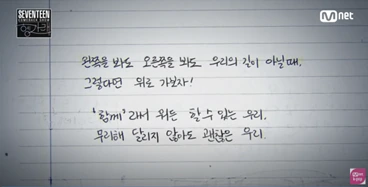 SEVENTEEN
COMEBACK SHOW
M net
왼쪽을 봐도 오른쪽을 봐도 우리의 길이 아닐 때,
그렇다면 위로 가보자!
'함께'라서 뭐든 할 수 있는 우리.
무리해 달리지 않아도 괜찮은 우리.